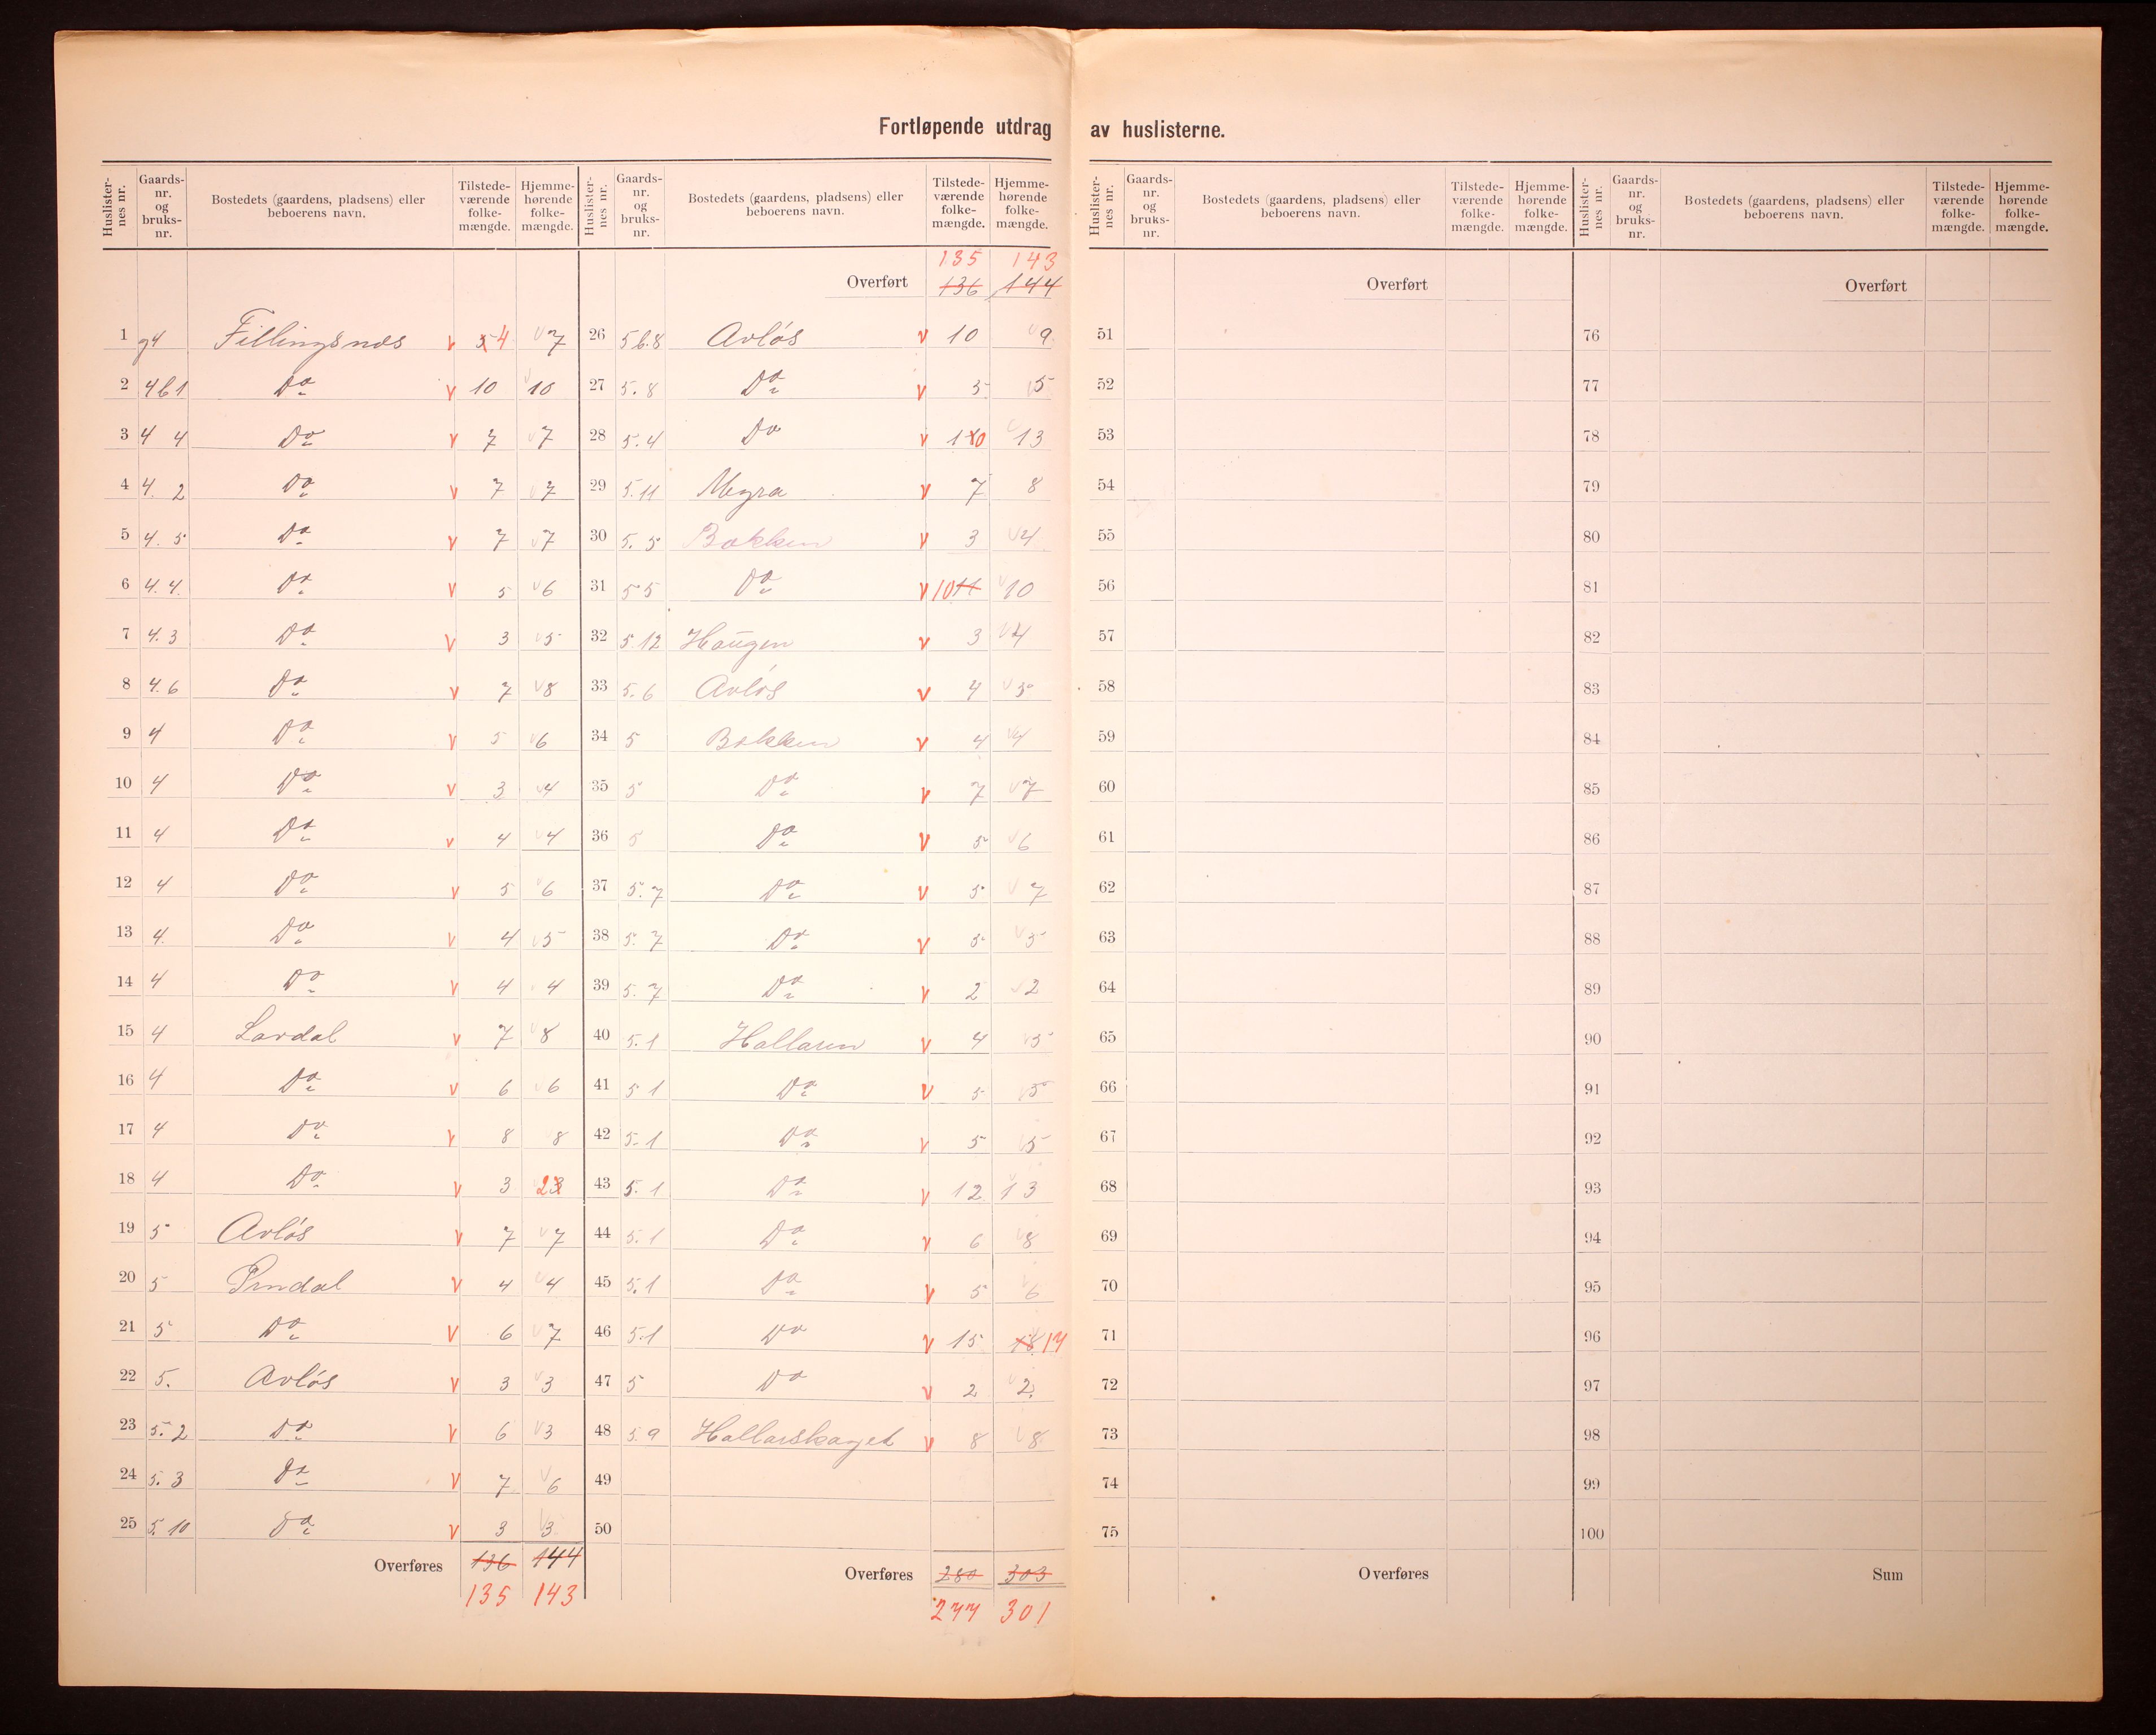 Fortløpende utdrag av huslisterne.
Huslister-nes nr. Gaards-nr. og bruks-nr. Bostedets (gaardens, pladsens) eller beboerens navn. Tilstede-værende folke-mængde. Hjemme-hørende folke-mængde.
1 g4 Fillingsnes v 5 4 v 7
2 4 b 1 Do v 10 v 10
3 4 4 Do v 7 v 7
4 4. 2 Do v 7 v 7
5 4. 5 Do v 7 v 7
6 4. 4. Do v 5 v 6
7 4. 3 Do v 3 v 5
8 4. 6 Do v 7 v 8
9 4 Do v 5 v 6
10 4 Do v 3 v 4
11 4 Do v 4 v 4
12 4 Do v 5 v 6
13 4. Do v 4 v 5
14 4 Do v 4 4
15 4 Lardal v 7 v 8
16 4 Do v 6 v 6
17 4 Do v 8 8
18 4 Do v 3 2 3
19 5 Avløs v 7 v 7
20 5 v 4 v 4
21 5 Do v 6 v 7
22 5. Avløs v 3 v 3
23 5. 2 Do v 6 v 3
24 5. 3 Do v 7 v 6
25 5. 10 Do v 3 v 3
Overføres 136 144
135 143
Huslister-nes nr. Gaards-nr. og bruks-nr. Bostedets (gaardens, pladsens) eller beboerens navn. Tilstede-værende folke-mængde. Hjemme-hørende folke-mængde.
135 143
Overført 136 144
26 5 b. 8 Avløs v 10 v 9
27 5. 8 Do v 5 v 5
28 5. 4 Do v 10 v 13
29 5. 11 Myra v 7 8
30 5. 5 Bakken v 3 v 4
31 5 5 Do v 10 11 v 10
32 5. 12 Haugen v 3 v 4
33 5. 6 Avløs v 4 v 5
34 5 Bakken v 4 v 4
35 5 Do v 7 v 7
36 5 Do v 5 v 6
37 5. 7 Do v 5 v 7
38 5. 7 Do v 5 v 5
39 5. 7 Do v 2 v 2
40 5. 1 Hallaren v 4 v 5
41 5 1 Do v 5 v 5
42 5. 1 Do v 5 v 5
43 5. 1 Do v 12 v 13
44 5. 1 Do v 6 v 8
45 5. 1 Do v 5 v 6
46 5. 1 Do v 15 18 17
47 5 Do v 2 v 2
48 5. 9 Hallarskaget v 8 v 8
49
50
Overføres 280 303
277 301
Huslister-nes nr. Gaards-nr. og bruks-nr. Bostedets (gaardens, pladsens) eller beboerens navn. Tilstede-værende folke-mængde. Hjemme-hørende folke-mængde.
Overført
51
52
53
54
55
56
57
58
59
60
61
62
63
64
65
66
67
68
69
70
71
72
73
74
75
Overføres
Huslister-nes nr. Gaards-nr. og bruks-nr. Bostedets (gaardens, pladsens) eller beboerens navn. Tilstede-værende folke-mængde. Hjemme-hørende folke-mængde.
Overført
76
77
78
79
80
81
82
83
84
85
86
87
88
89
90
91
92
93
94
95
96
97
98
99
100
Sum